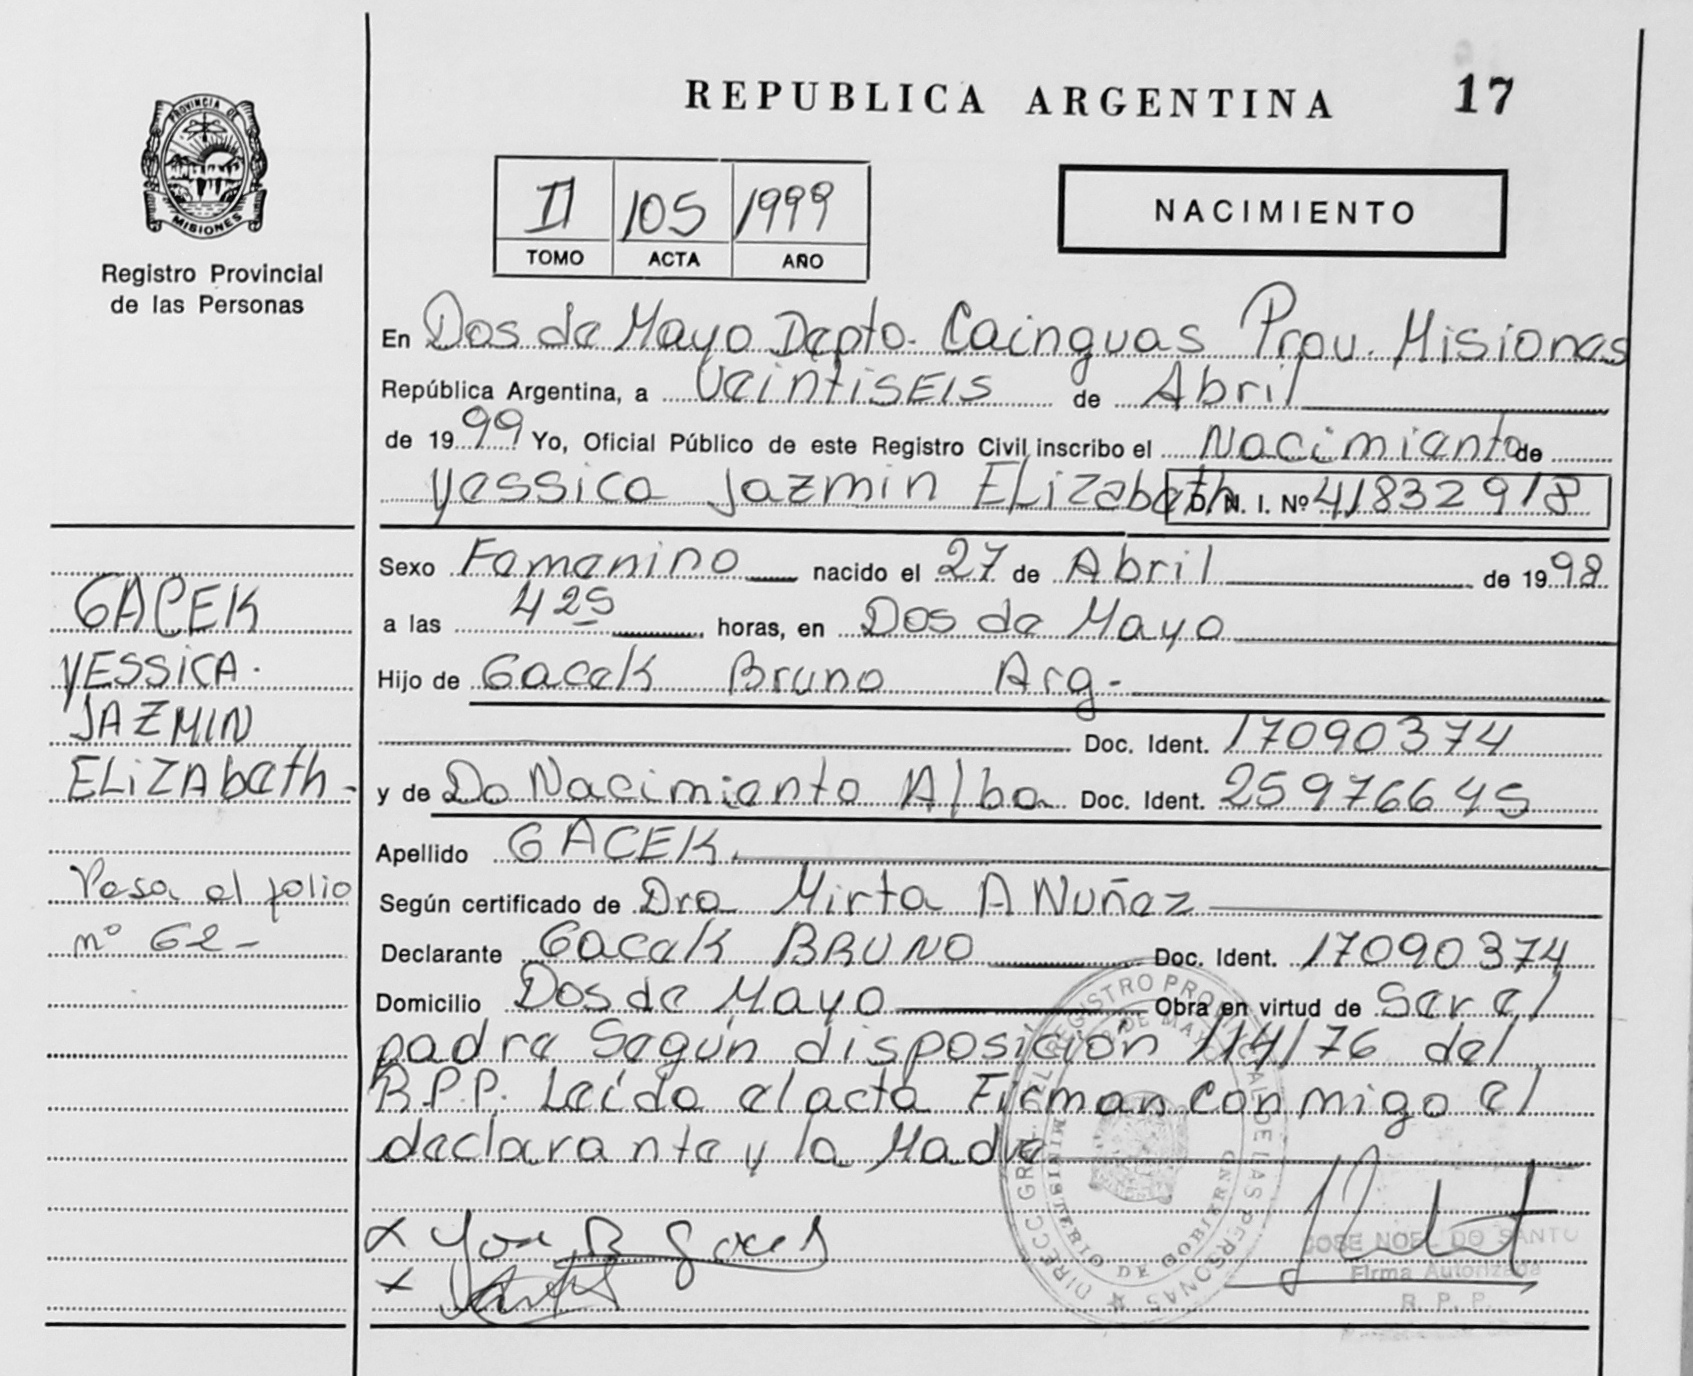 REPUBLICA ARGENTINA 17
PROVINCIA DE
MISIONES
Registro Provincial
de las Personas
II 105 1999
TOMO ACTA AÑO
NACIMIENTO
En Dos de Mayo Depto. Cainguas Prov. Misiones
República Argentina, a Veintiseis de Abril
de 1999 Yo, Oficial Público de este Registro Civil inscribo el Nacimiento de
Yessica Jazmin Elizabeth D. N. I. Nº 41832918
Sexo Femenino nacido el 27 de Abril de 1998
a las 4 25 horas, en Dos de Mayo
Hijo de Gacek Bruno Arg.
Doc. Ident. 17090374
y de Do Nacimiento Alba Doc. Ident. 25976645
Apellido GACEK
Según certificado de Dra Mirta A Nuñez
Declarante Gacek BRUNO Doc. Ident. 17090374
Domicilio Dos de Mayo Obra en virtud de Ser el
padre Según disposición 114/76 del
R.P.P. Leída el acta Firman conmigo el
declarante y la Madre
GACEK
YESSICA.
JAZMIN
ELIZAbeth-
Pasa al folio
nº 62-
DIRECC. GRAL. DEL REGISTRO PROVINCIAL DE LAS PERSONAS
DOS DE MAYO
MINISTERIO DE GOBIERNO
JOSE NOEL DO SANTO
Firma Autorizada
R. P. P.